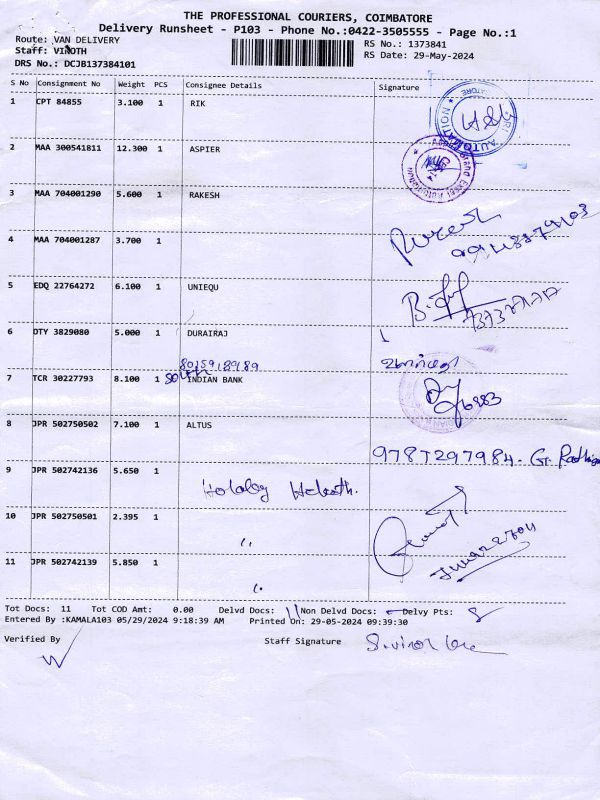 THE PROFESSIONAL COURIERS, COIMBATORE
Delivery Runsheet - P103 - Phone No.:0422-3505555 - Page No.:1
Route: VAN DELIVERY
Staff: VINOTH
RS No.: 1373841
RS Date: 29-May-2024
DRS No.: DCJB137384101
S No Consignment No Weight PCS Consignee Details Signature
1 CPT 84855 3.100 1 RIK
2 MAA 300541811 12.300 1 ASPIER
3 MAA 704001290 5.600 1 RAKESH
4 MAA 704001287 3.700 1
5 EDQ 22764272 6.100 1 UNIEQU
6 DTY 3829080 5.000 1 DURAIRAJ
8015918989
7 TCR 30227793 8.100 1 INDIAN BANK
8 JPR 502750502 7.100 1 ALTUS
9 JPR 502742136 5.650 1
10 JPR 502750501 2.395 1 〃
11 JPR 502742139 5.850 1 〃
Tot Docs: 11 Tot COD Amt: 0.00 Delvd Docs: 11 Non Delvd Docs: - Delvy Pts: 8
Entered By :KAMALA103 05/29/2024 9:18:39 AM Printed On: 29-05-2024 09:39:30
Verified By Staff Signature